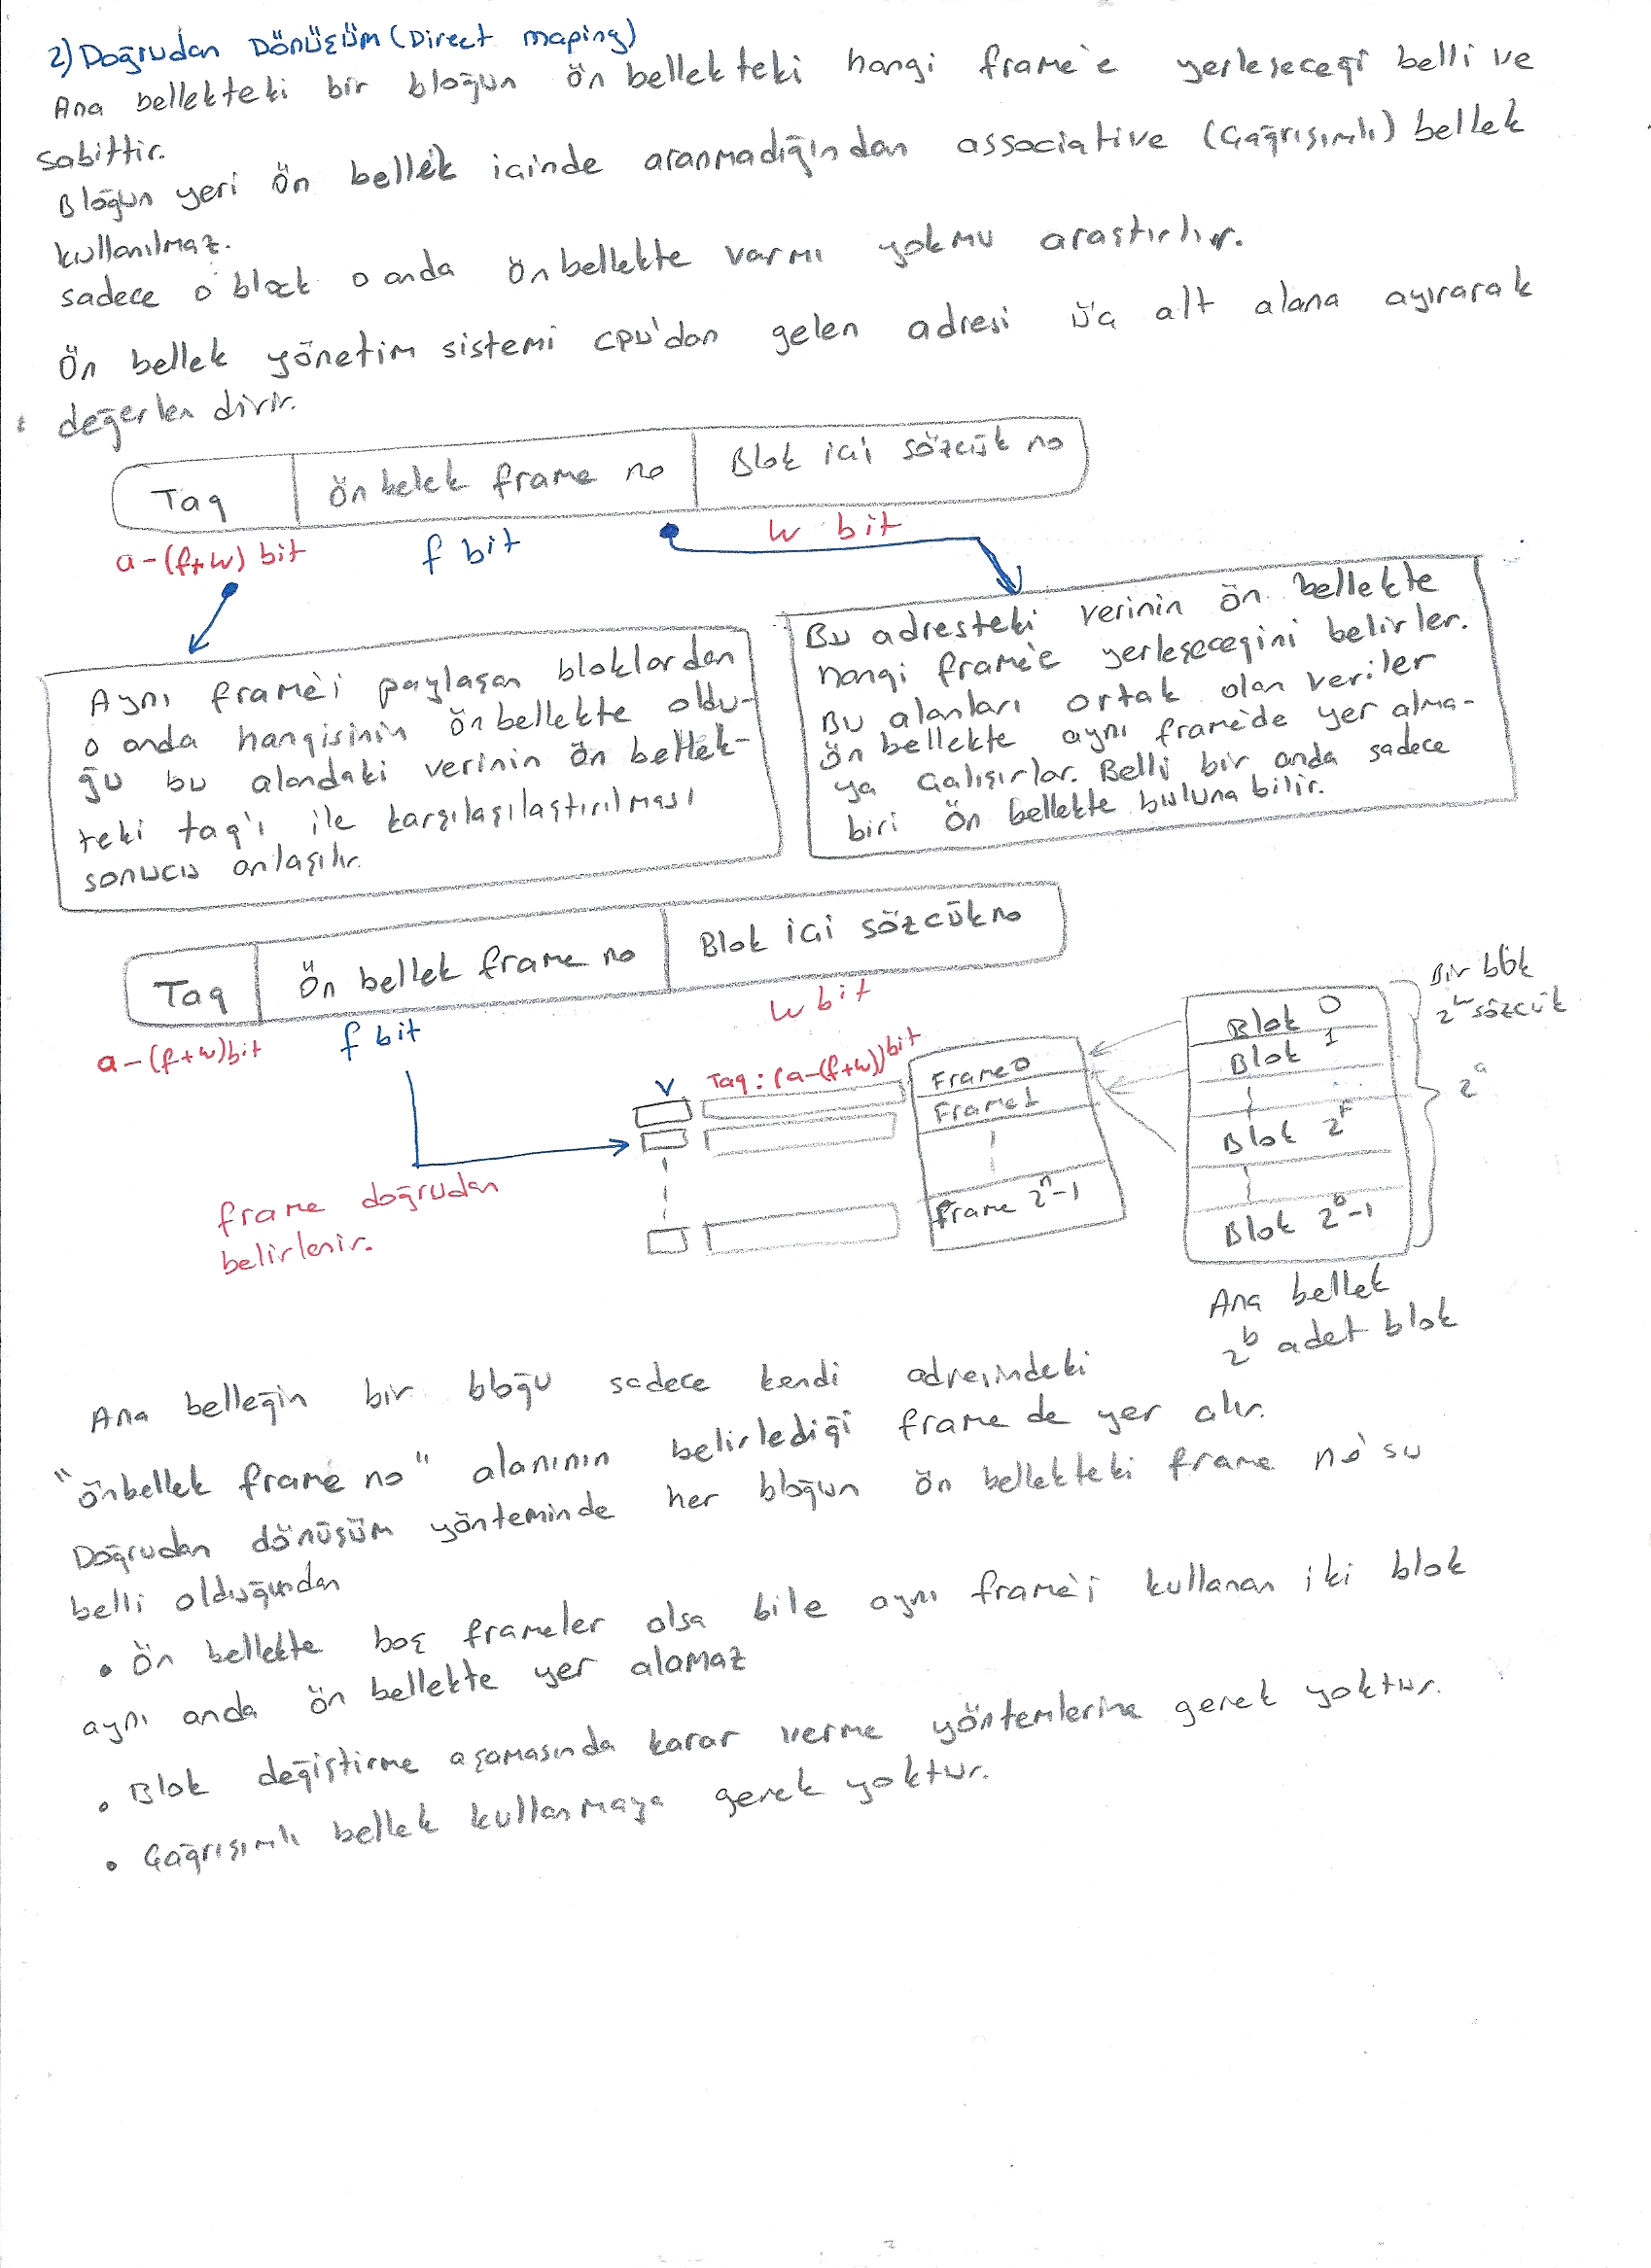 2) Doğrudan Dönüşüm (Direct maping)
Ana bellekteki bir bloğun ön bellekteki hangi frame'e yerleşeceği belli ve
sabittir.
Bloğun yeri ön bellek içinde aranmadığından associative (Çağrışımlı) bellek
kullanılmaz.
sadece o block o anda önbellekte varmı yokmu araştırılır.
Ön bellek yönetim sistemi CPU'dan gelen adresi üç alt alana ayırarak
değerlendirir.
Taq | Ön belek frame no | Blok içi sözcük no
a-(f+w) bit f bit w bit
Aynı frame'i paylaşan bloklardan
o anda hangisinin önbellekte oldu-
ğu bu alandaki verinin ön bellek-
teki taq'ı ile karşılaşılaştırılması
sonucu anlaşılır.
Bu adresteki verinin ön bellekte
hangi frame'e yerleşeceğini belirler.
Bu alanları ortak olan veriler
ön bellekte aynı frame'de yer alma-
ya çalışırlar. Belli bir anda sadece
biri ön bellekte buluna bilir.
Taq | Ön bellek frame no | Blok içi sözcük no
a-(f+w)bit f bit w bit
frame doğrudan
belirlenir.
V Taq: (a-(f+w))bit
Frame0
Frame1
frame 2^n-1
Blok 0
Blok 1
Blok 2^f
Blok 2^b-1
Bir blok
2^w sözcük
2^a
Ana bellek
2^b adet blok
Ana belleğin bir bloğu sadece kendi adresindeki
"önbellek frame no" alanının belirlediği frame de yer alır.
Doğrudan dönüşüm yönteminde her bloğun ön bellekteki frame no'su
belli olduğundan
• Ön bellekte boş frameler olsa bile aynı frame'i kullanan iki blok
aynı anda ön bellekte yer alamaz
• Blok değiştirme aşamasında karar verme yöntemlerine gerek yoktur.
• Çağrışımlı bellek kullanmaya gerek yoktur.